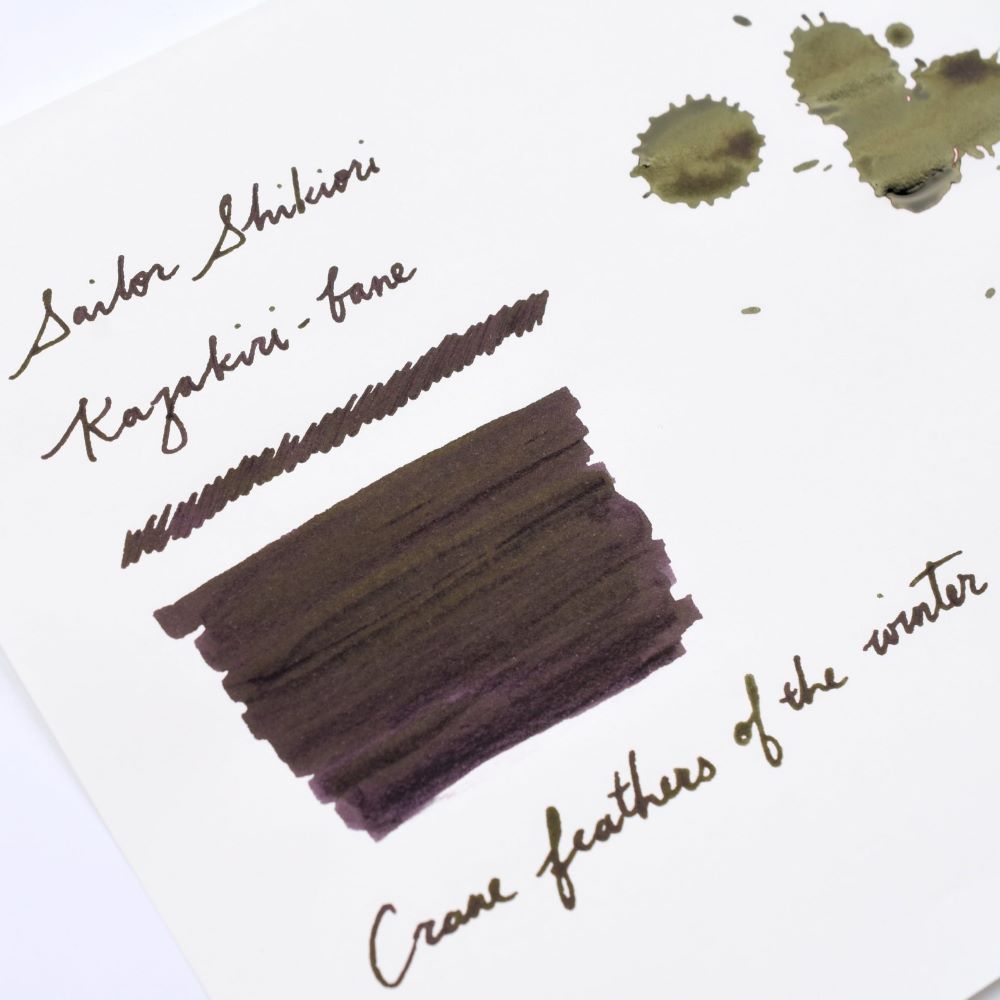 Sailor Shikiori
Kazakiri-bane
Crane feathers of the winter